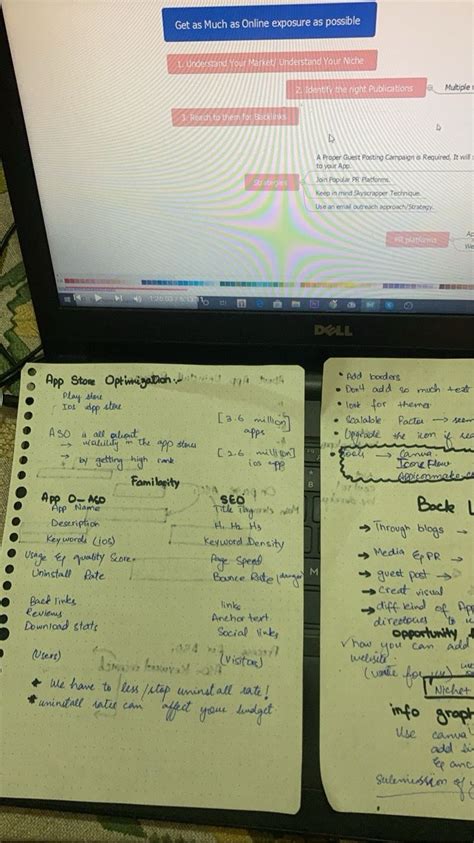 Get as Much as Online exposure as possible
1. Understand Your Market/ Understand Your Niche
2. Identify the right Publications
Multiple
3. Reach to them for Backlinks
A Proper Guest Posting Campaign is Required, It will
to your App.
Join Popular PR Platforms.
Strategies
Keep in mind Skyscrapper Technique.
Use an email outreach approach/Strategy.
PR platforms
DELL
App Store Optimization
Play store
IOS app store
[3.6 million]
apps
ASO is all about
→ visibility in the app stores
→ by getting high rank
[2.6 million]
ios app
Familarity
App O-ASO SEO
App Name Title Tag
Description H1 H2 H3
Keywords (IOS) Keyword Density
Usage & quality Score Page Speed
Uninstall Rate Bounce Rate (danger)
Back links links
Reviews Anchor text
Download stats Social links
(Users) (Visitors)
* We have to less/stop uninstall rate!
* uninstall rates can affect your budget
• Add borders
• Don't add so much text
• look for themes
• Scalable Factor → seem
• Upgrade the icon if
→ Canva
Icon Flow
Appiconmake
Back L
→ Through blogs
→ Media & PR
→ guest post →
→ Creat visual
→ diff kind of App
directories to
opportunity
how you can add
website
(write for
Niche+
info graph
Use canva
add
&
Submission of